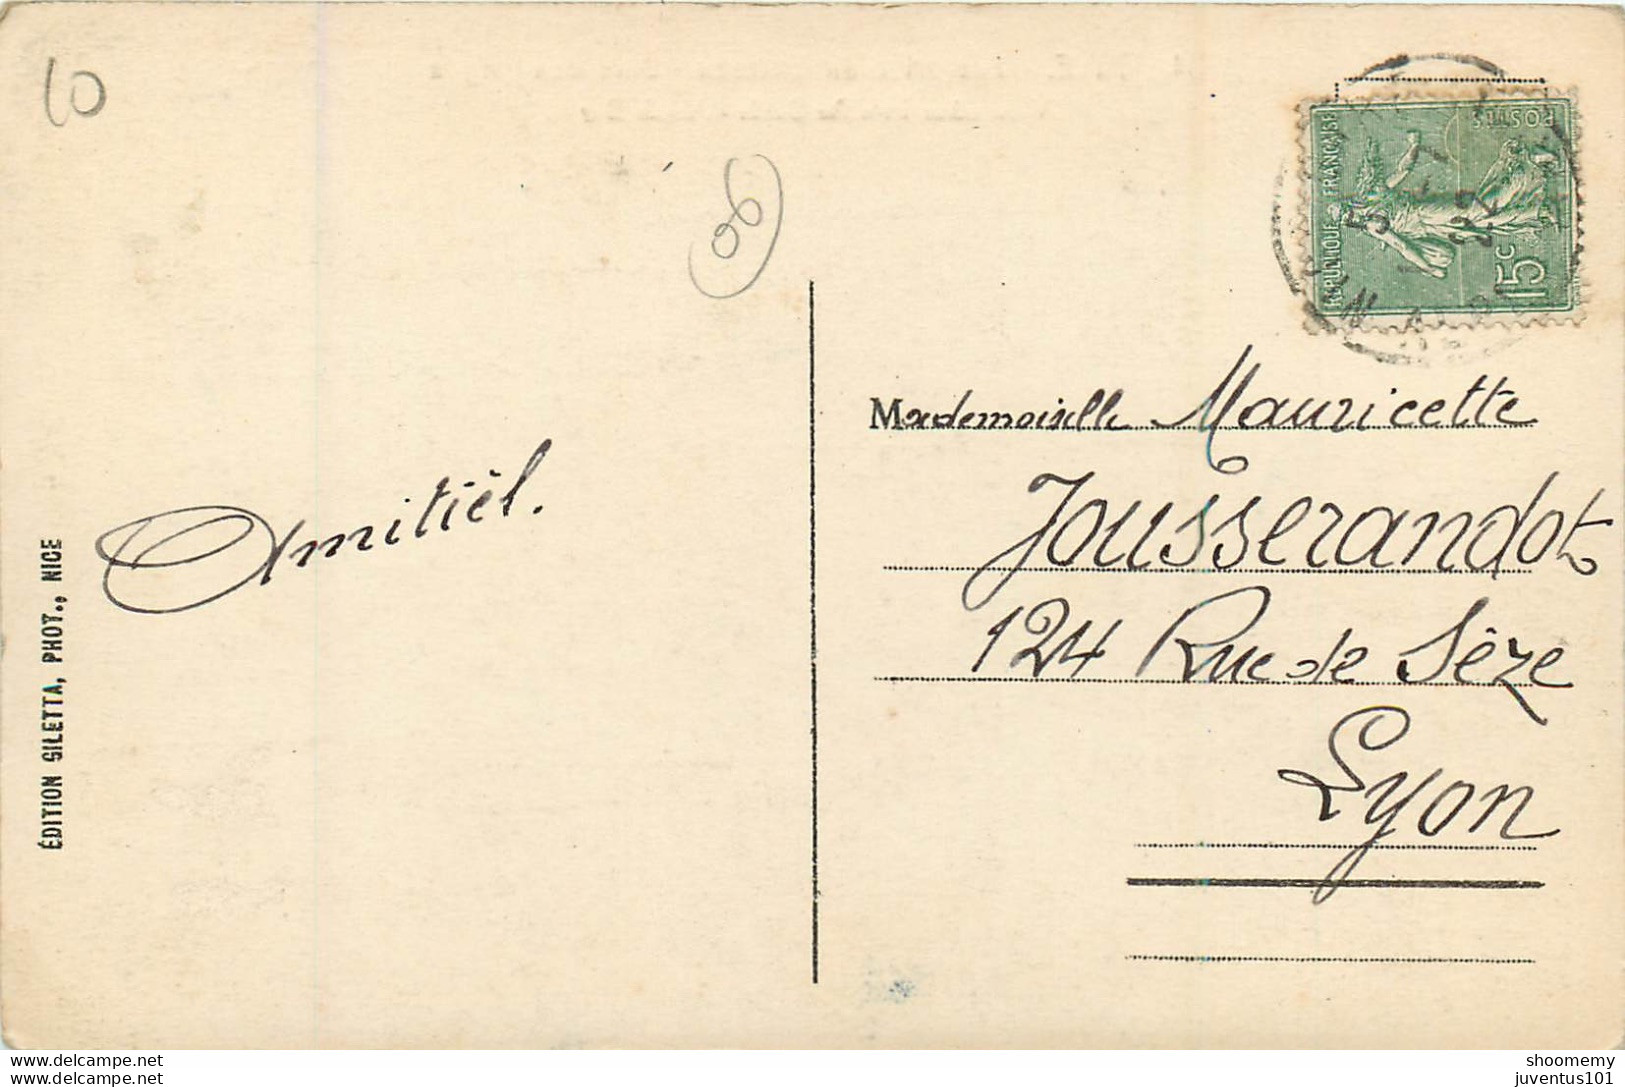 10
06
RÉPUBLIQUE FRANÇAISE
POSTES
15c
5 - 7
22
Mademoiselle Mauricette
Jousserandot
124 Rue de Sèze
Lyon
Amitiél.
ÉDITION GILETTA, PHOT., NICE
delcampe.net
delcampe.net
shoomemy
juventus101